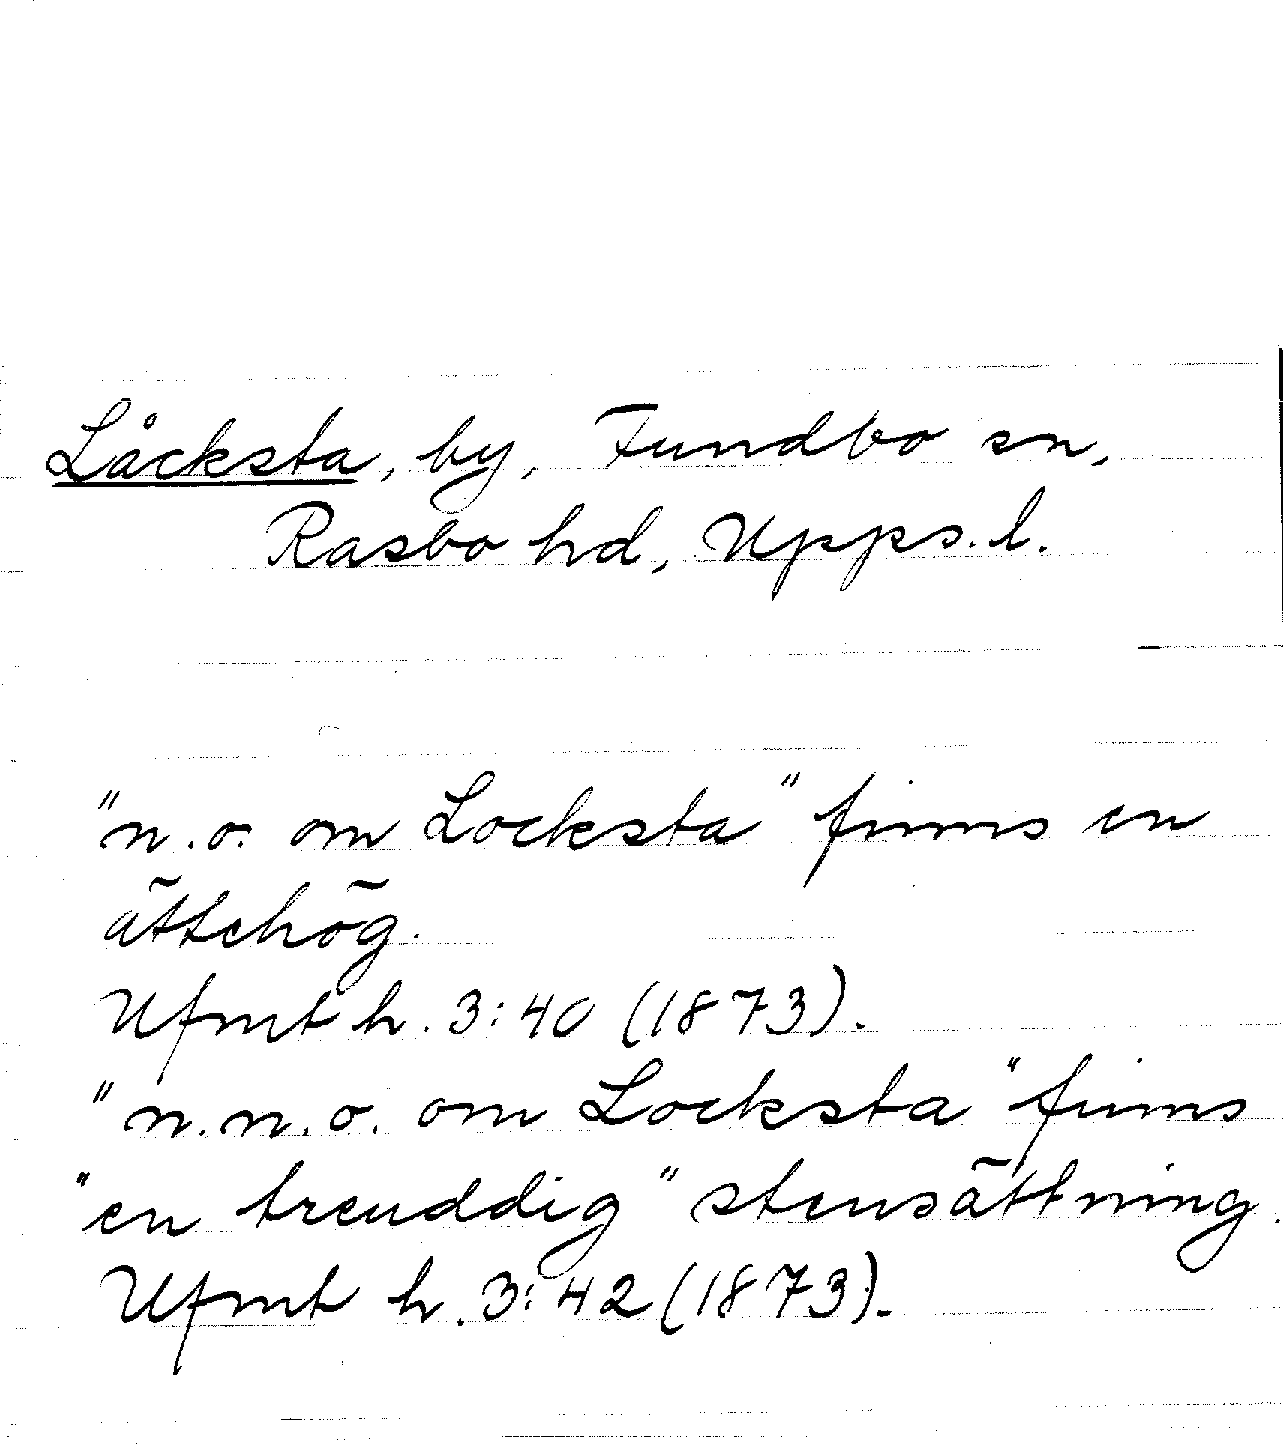 Låcksta, by, Fundbo sn,
Rasbo hd, Upps. l.
"n.o. om Locksta" finns en
ättehög.
Ufmt h. 3:40 (1873).
"n.n.o. om Locksta" finns
"en treuddig" stensättning.
Ufmt h. 3:42 (1873).